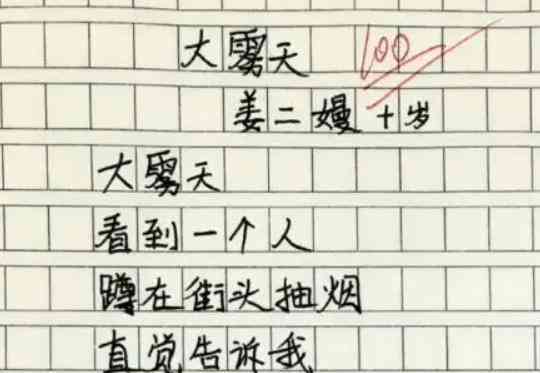 大雾天 100
姜二嫚 十岁
大雾天
看到一个人
蹲在街头抽烟
直觉告诉我